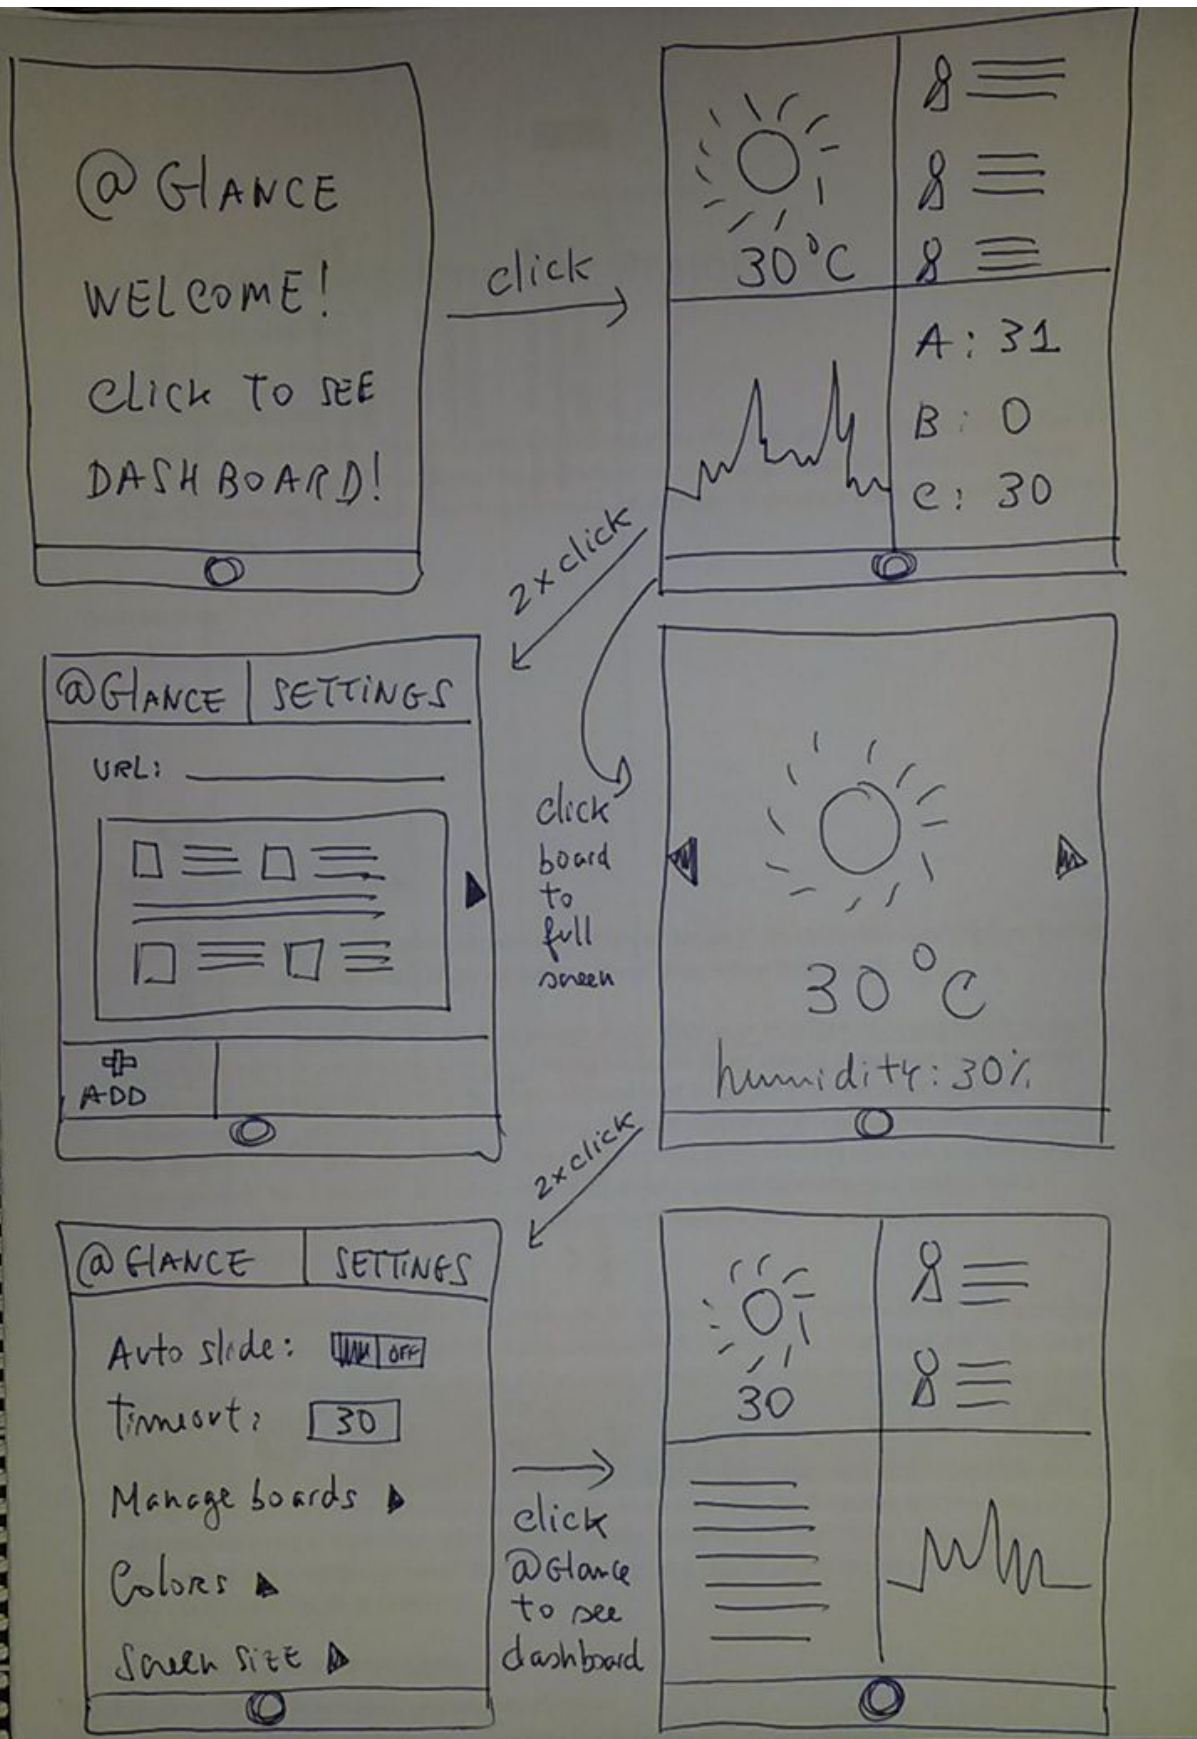 @GLANCE
WELCOME!
CLICK TO SEE
DASHBOARD!
click
30°C
A: 31
B: 0
C: 30
2x click
@GLANCE SETTINGS
URL:
ADD
click
board
to
full
screen
30°C
humidity: 30%
2x click
@GLANCE SETTINGS
Auto slide: OFF
Timeout: 30
Manage boards
Colors
Screen size
click
@Glance
to see
dashboard
30